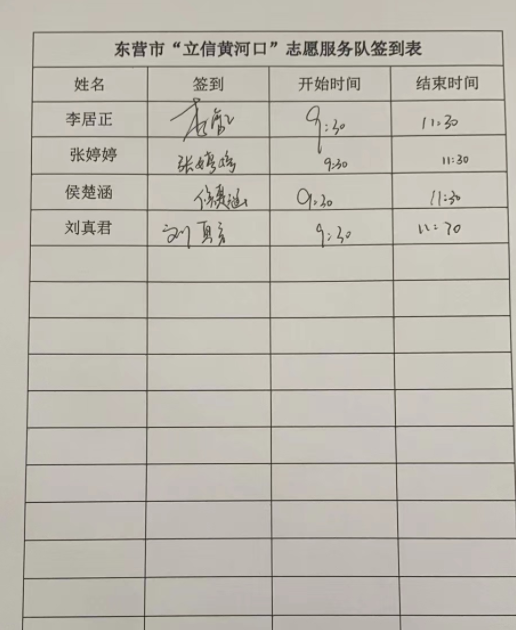 东营市“立信黄河口”志愿服务队签到表
姓名 签到 开始时间 结束时间
李居正 9:30 11:30
张婷婷 张婷婷 9:30 11:30
侯楚涵 侯楚涵 9:30 11:30
刘真君 刘真君 9:30 11:30